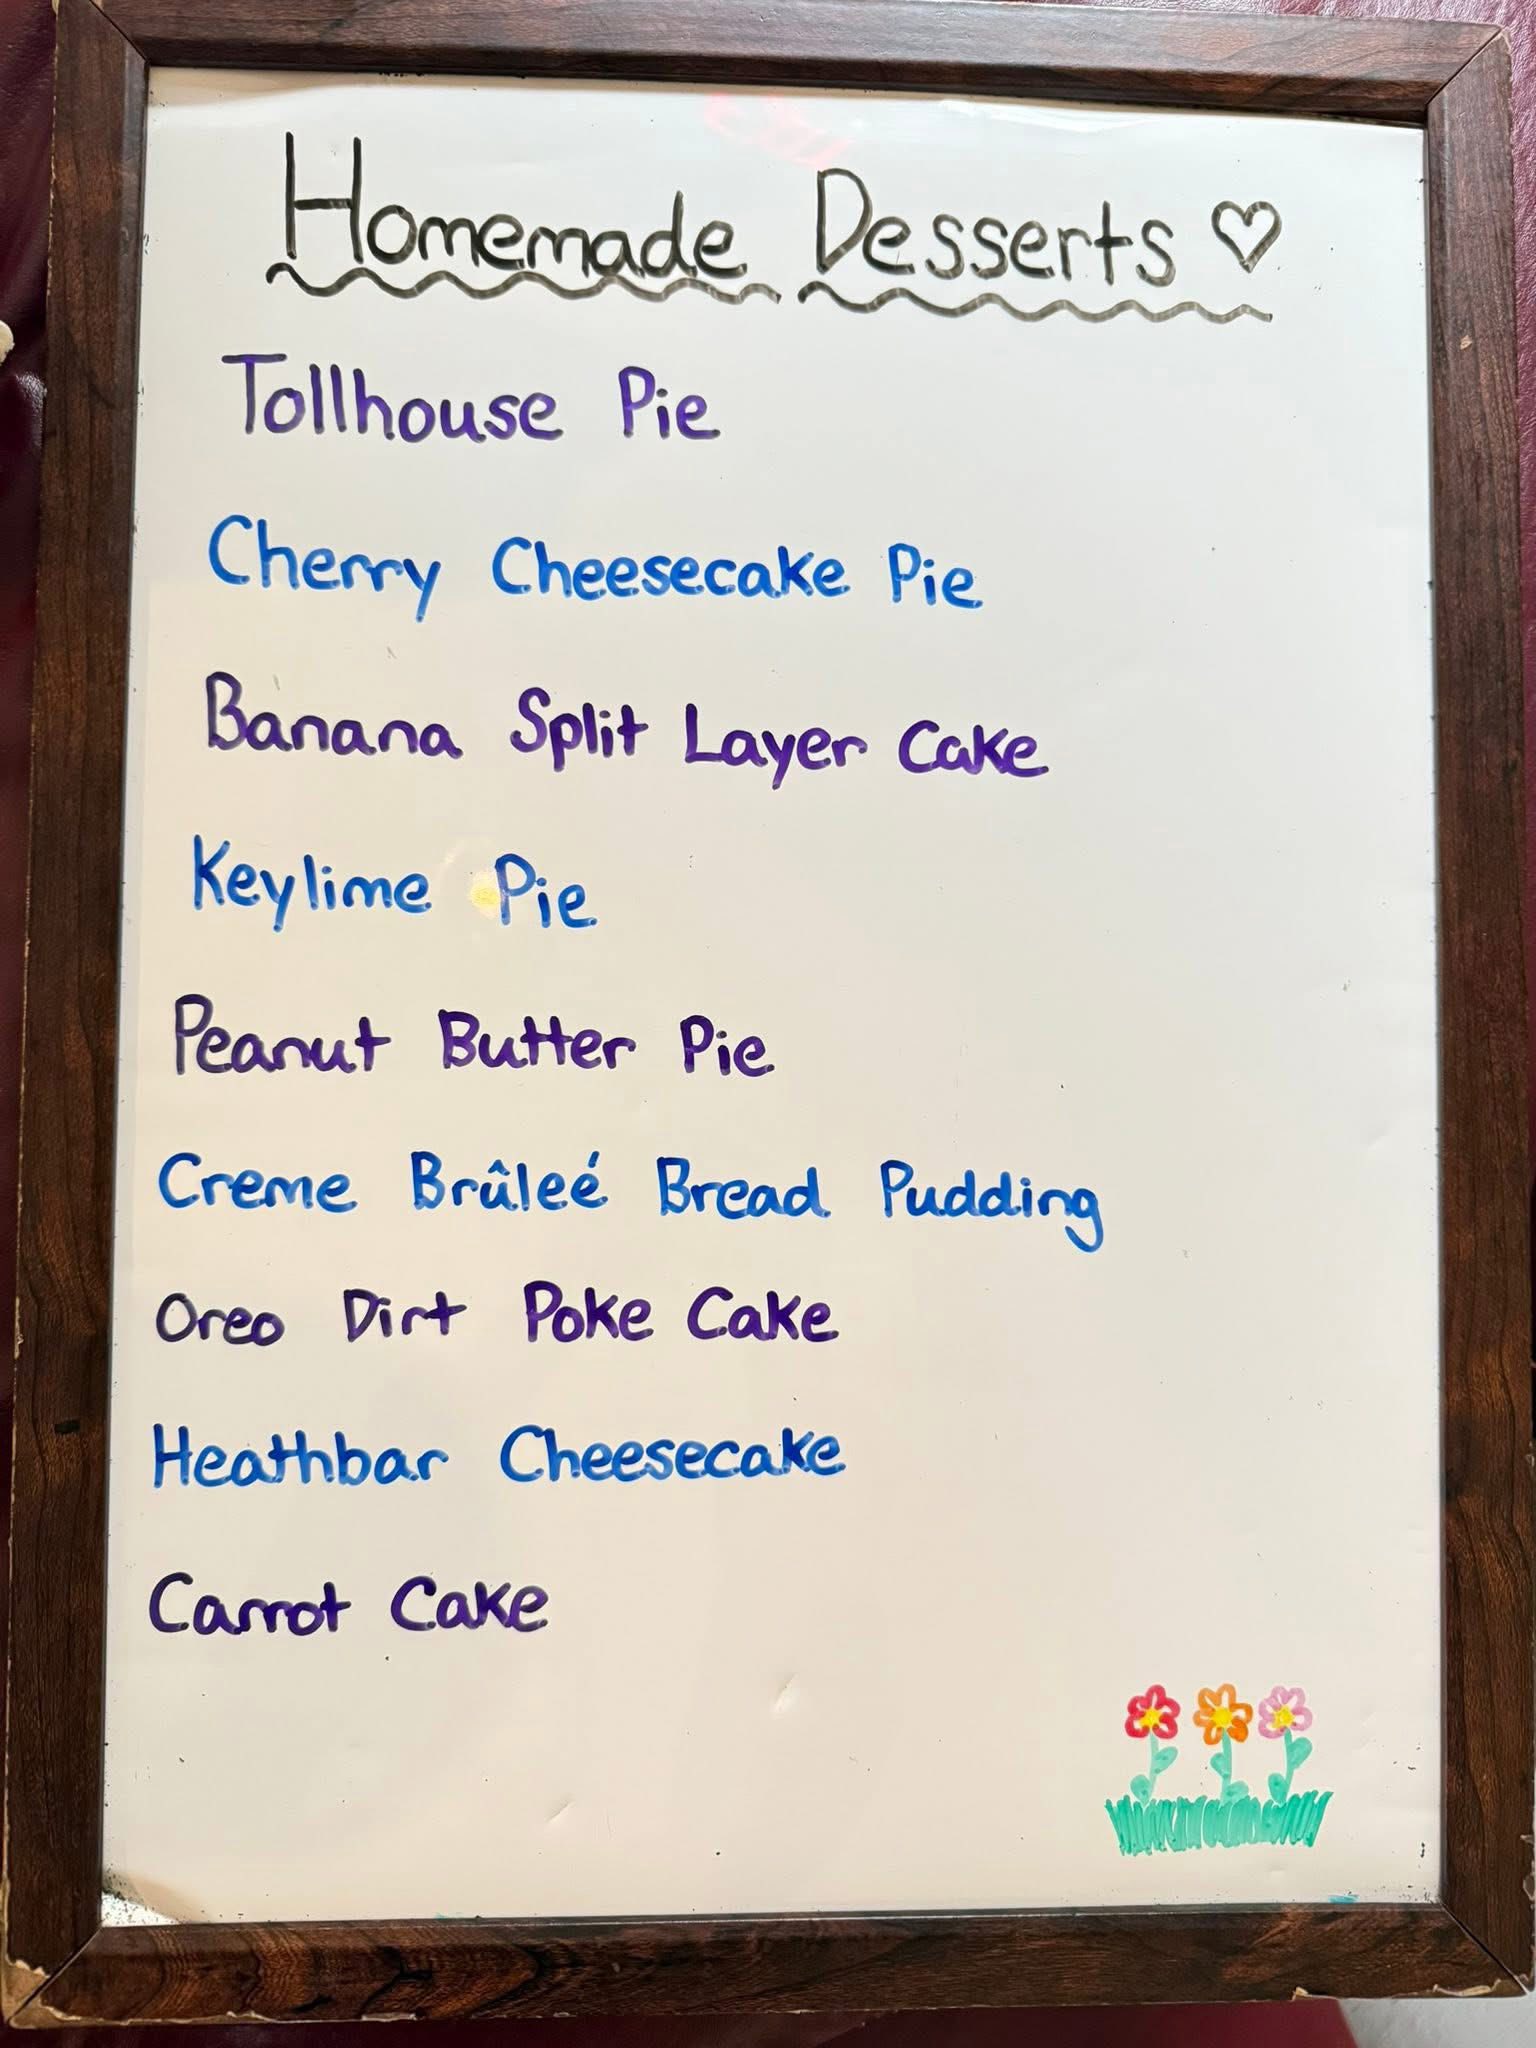 Homemade Desserts ♡
Tollhouse Pie
Cherry Cheesecake Pie
Banana Split Layer Cake
Keylime Pie
Peanut Butter Pie
Creme Brûleé Bread Pudding
Oreo Dirt Poke Cake
Heathbar Cheesecake
Carrot Cake